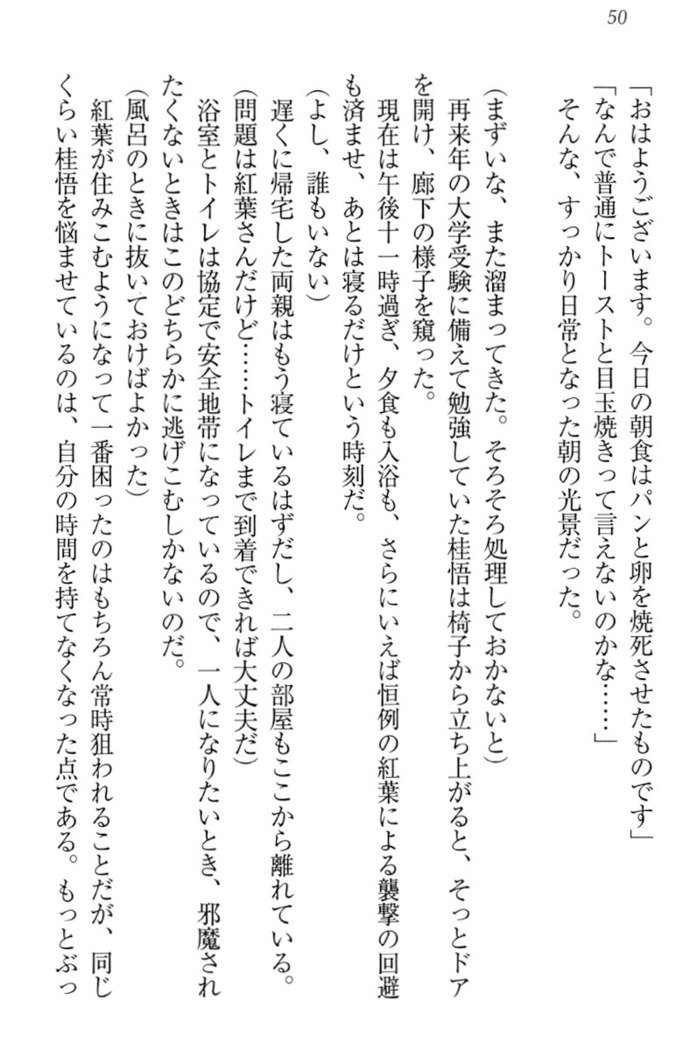 50
「おはようございます。今日の朝食はパンと卵を焼死させたものです」
「なんで普通にトーストと目玉焼きって言えないのかな……」
そんな、すっかり日常となった朝の光景だった。
(まずいな、また溜まってきた。そろそろ処理しておかないと)
再来年の大学受験に備えて勉強していた桂悟は椅子から立ち上がると、そっとドア
を開け、廊下の様子を窺った。
現在は午後十一時過ぎ、夕食も入浴も、さらにいえば恒例の紅葉による襲撃の回避
も済ませ、あとは寝るだけという時刻だ。
(よし、誰もいない)
遅くに帰宅した両親はもう寝ているはずだし、二人の部屋もここから離れている。
(問題は紅葉さんだけど……トイレまで到着できれば大丈夫だ)
浴室とトイレは協定で安全地帯になっているので、一人になりたいとき、邪魔され
たくないときはこのどちらかに逃げこむしかないのだ。
(風呂のときに抜いておけばよかった)
紅葉が住みこむようになって一番困ったのはもちろん常時狙われることだが、同じ
くらい桂悟を悩ませているのは、自分の時間を持てなくなった点である。もっとぶっ